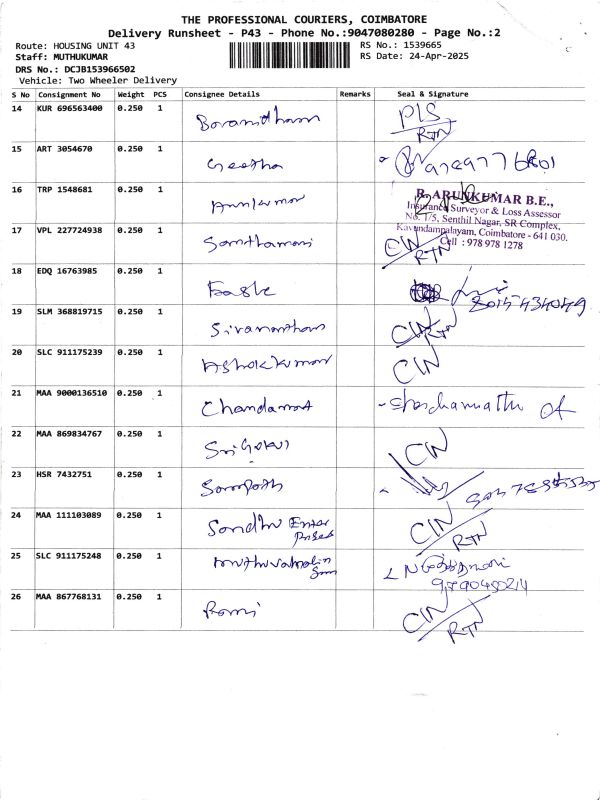 THE PROFESSIONAL COURIERS, COIMBATORE
Delivery Runsheet - P43 - Phone No.:9047080280 - Page No.:2
Route: HOUSING UNIT 43
RS No.: 1539665
Staff: MUTHUKUMAR
RS Date: 24-Apr-2025
DRS No.: DCJB153966502
Vehicle: Two Wheeler Delivery
S No Consignment No Weight PCS Consignee Details Remarks Seal & Signature
14 KUR 696563400 0.250 1 P/S
RTN
15 ART 3054670 0.250 1 Geetha
16 TRP 1548681 0.250 1 Arunkumar
R. ARUNKUMAR B.E.,
Insurance Surveyor & Loss Assessor
No. 1/5, Senthil Nagar, SR Complex,
Kavundampalayam, Coimbatore - 641 030.
Cell : 978 978 1278
17 VPL 227724938 0.250 1 Santhamani C/N
RTN
18 EDQ 16763985 0.250 1
19 SLM 368819715 0.250 1 C/N
RTN
20 SLC 911175239 0.250 1 Ashokkumar C/N
21 MAA 9000136510 0.250 1
22 MAA 869834767 0.250 1 C/N
23 HSR 7432751 0.250 1 Sampath
24 MAA 111103089 0.250 1 Sandhu Enter
prises
C/N
RTN
25 SLC 911175248 0.250 1
26 MAA 867768131 0.250 1 C/N
RTN